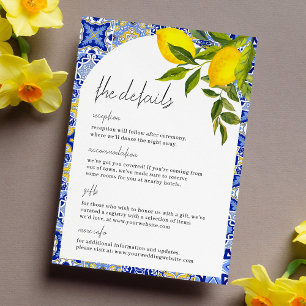 the details
reception
reception will follow after ceremony,
where we'll dance the night away.
accomodation
we've got you covered! if you're coming from
out of town, we've made sure to reserve
some rooms for you at nearby hotels.
gifts
for those who wish to honor us with a gift, we've
curated a registry with a selection of items
www.yourwebsite.com
more info
for additional information and updates,
please visit www.yourweddingwebsite.com